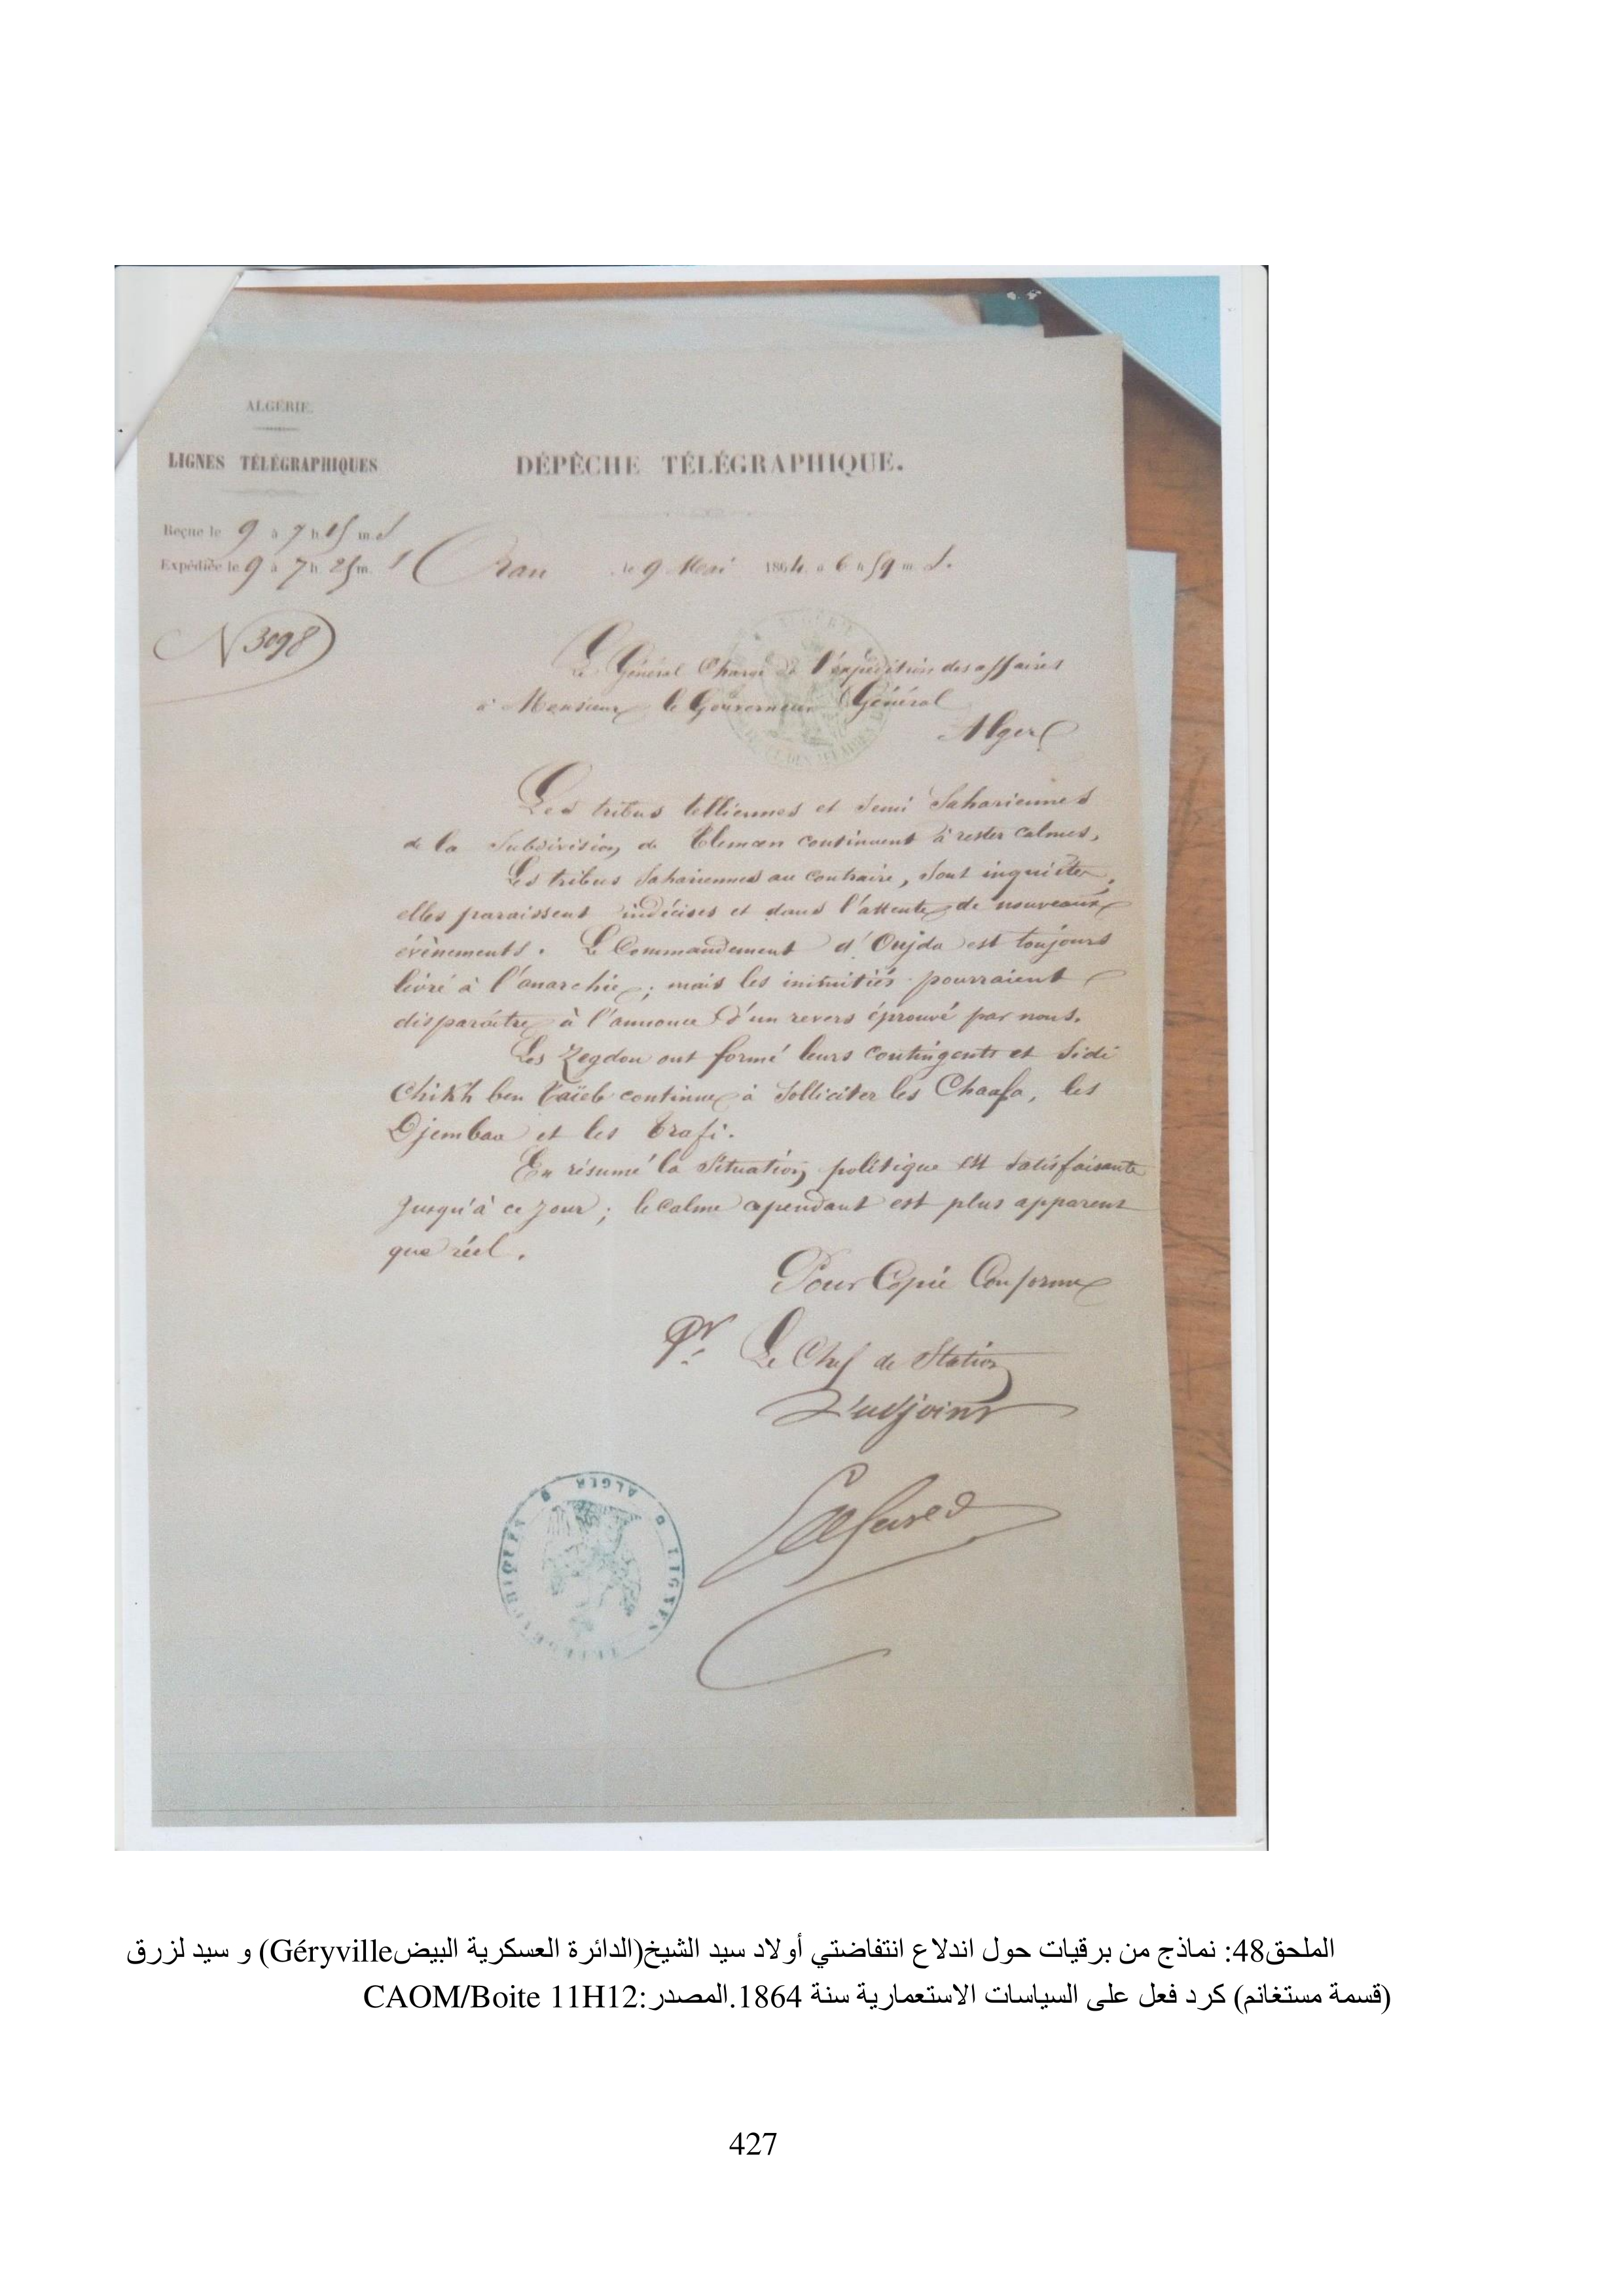 ALGÉRIE.
LIGNES TÉLÉGRAPHIQUES
DÉPÊCHE TÉLÉGRAPHIQUE.
Reçue le 9 à 7 h 15 m. s
Expédiée le 9 à 7 h 25 m. s
Oran le 9 Mai 1864 à 6 h 59 m. s.
N 3098
Le Général Chargé de l'expédition des affaires
à Monsieur le Gouverneur Général
Alger
Les tribus telliennes et semi Sahariennes
de la Subdivision de Tlemcen continuent à rester calmes,
Les tribus Sahariennes au contraire, sont inquiètes,
elles paraissent indécises et dans l'attente de nouveaux
évènements. Le Commandement d'Oujda est toujours
livré à l'anarchie; mais les inimitiés pourraient
disparaître à l'annonce d'un revers éprouvé par nous.
Les Zegdou ont formé leurs contingents et Sidi
Chikh ben Taïeb continue à solliciter les Chaafa, les
Djembaa et les Trafi.
En résumé la Situation politique est satisfaisante
jusqu'à ce jour; le calme cependant est plus apparent
que réel.
Pour Copie Conforme
Pr. Le Chef de Station
L'adjoint
ALGER
الملحق48: نماذج من برقيات حول اندلاع انتفاضتي أولاد سيد الشيخ(الدائرة العسكرية البيضGéryville) و سيد لزرق
(قسمة مستغانم) كرد فعل على السياسات الاستعمارية سنة 1864.المصدر:CAOM/Boite 11H12
427